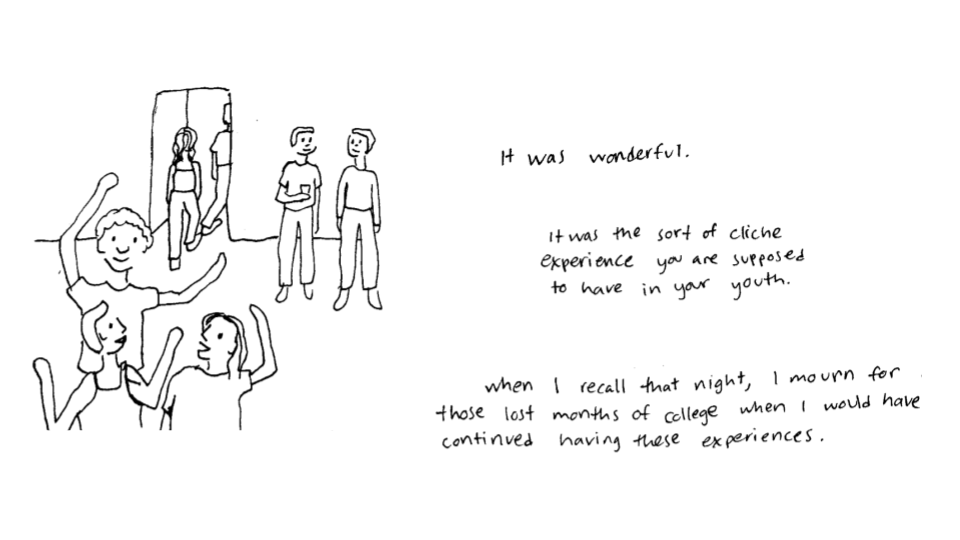 It was wonderful.
It was the sort of cliche
experience you are supposed
to have in your youth.
when I recall that night, I mourn for
those lost months of college when I would have
continued having these experiences.